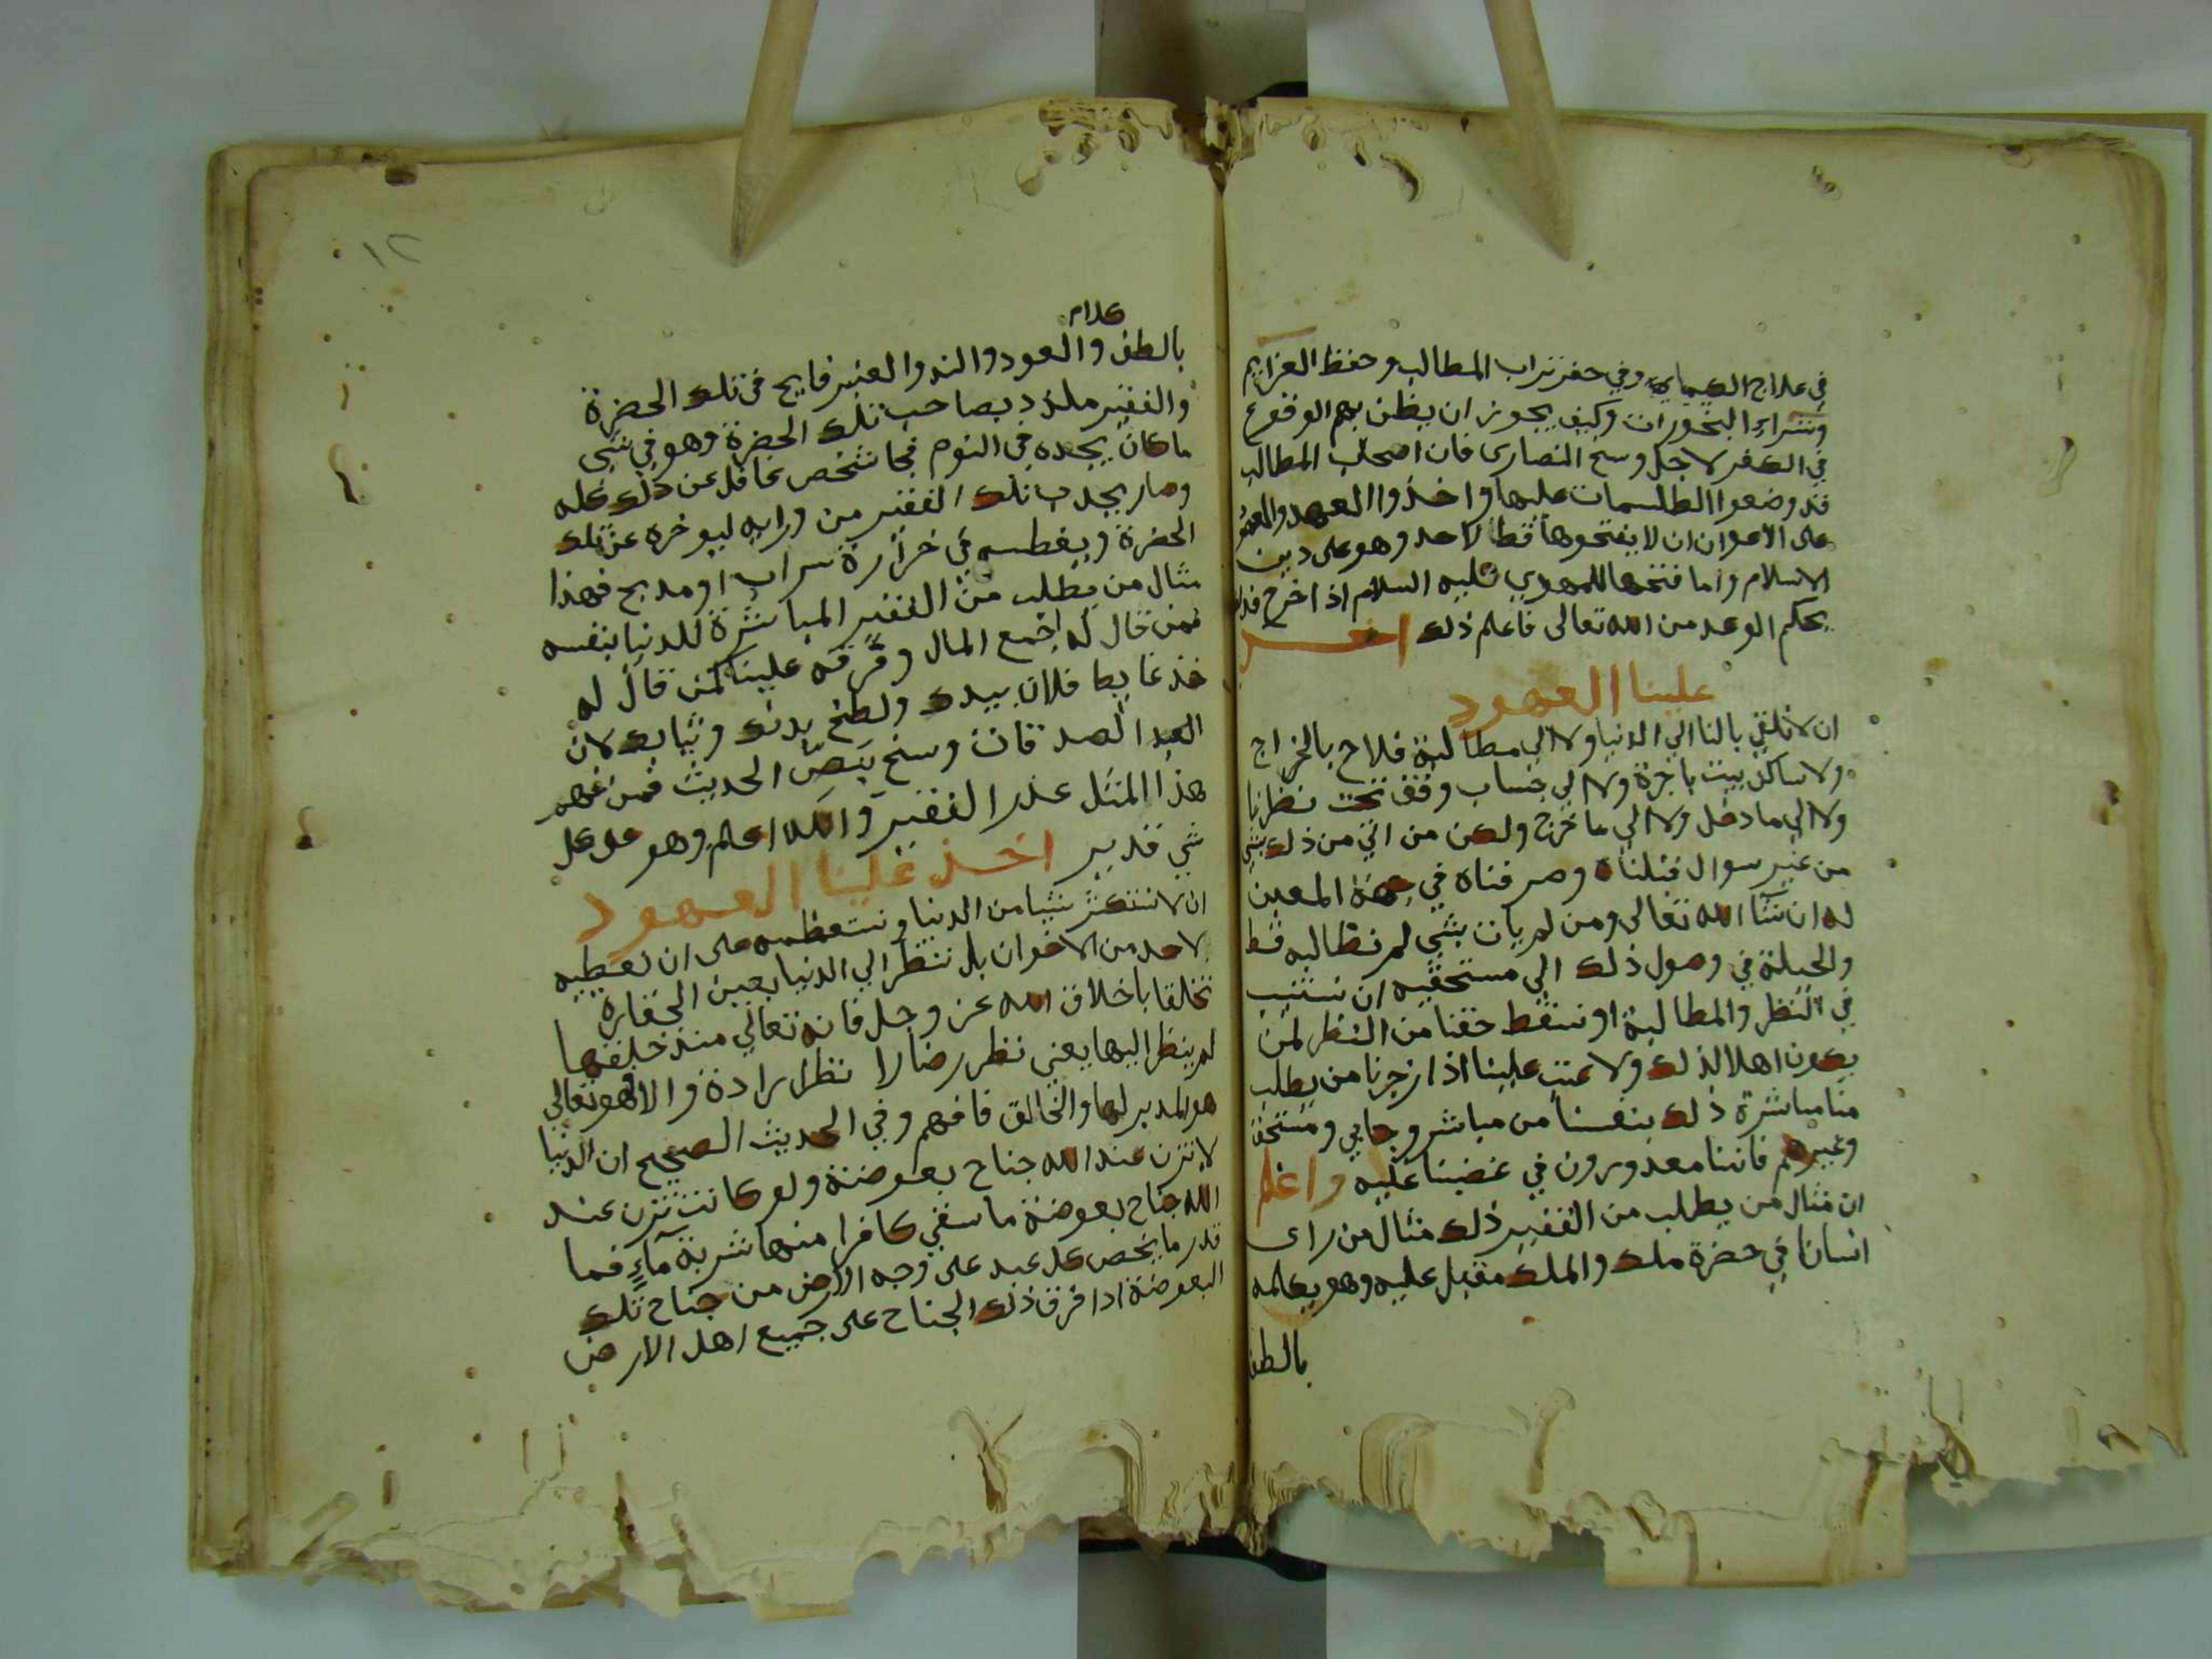 في علاج الكيماي وفي حفر تراب المطالب وحفظ العزايم
وشراء البخورات وكيف يجوز ان يظن بهم الوقوع
في الكفر لاجل وسخ النصارى فان اصحاب المطالب
قد وضعوا الطلسمات عليها واخذوا العهد
على الاعوان ان لا يفتحوها قط لاحد وهو على دين
الاسلام واما فتحها للمهدي عليه السلام اذا خرج فذلك
بحكم الوعد من الله تعالى فاعلم ذلك اخذ
علينا العهود
ان لا نلقي بالنا الي الدنيا ولا الي مطالبة فلاح بالخراج
ولا ساكن بيت باجرة ولا الي حساب وقف تحت نظرنا
ولا الي ما دخل ولا الي ما خرج ولكن من اتي من ذلك بشي
من غير سوال قبلناه وصرفناه في جهته المعين
له ان شآ الله تعالى ومن لم يات بشي لم نطالبه قط
والحيلة في وصول ذلك الى مستحقيه ان نستنيب
في النظر والمطالبة او نسقط حقنا من النظر لمن
يكون اهلا لذلك ولا عتب علينا اذا زجرنا من يطلب
منا مباشرة ذلك بنفسنا من مباشر وجابي ومستحق
وغيرهم فاننا معدورون في غضبنا عليه واعلم
ان مثال من يطلب من الفقير ذلك مثال من راى
انسانا في حضرة ملك والملك مقبل عليه وهو يكلمه
بالطف
كلام
بالطف والعود والند والعنبر فايح في تلك الحضرة
والفقير ملذذ بصاحب تلك الحضرة وهو في شي
ما كان يجده في النوم فجا شخص غافل عن ذلك كله
وصار يجذب تلك الفقير من ورايه ليوخره عن تلك
الحضرة ويغطسه في خرارة سراب او مدبح فهذا
مثال من يطلب من الفقير المباشرة للدنيا بنفسه
فمن قال له اجمع المال وفرقه علينا كمن قال له
خذ غايط فلان بيدك ولطخ بدنك وثيابك لان
الصدقات وسخ بنص الحديث فمن فهم
هذا المثل عذر الفقير والله اعلم وهو على كل
شي قدير اخذ علينا العهود
ان لا نستكثر شيا من الدنيا ونستعظمه على ان نعطيه
لاحد من الاخوان بل ننظر الي الدنيا بعين الحقارة
تخلقا باخلاق الله عز وجل فانه تعالي منذ خلقها
لم ينظر اليها يعني نظر رضا لا نظر ارادة والا فهو تعالي
هو المدبر لها والخالق فافهم وفي الحديث الصحيح ان الدنيا
لا تزن عند الله جناح بعوضة ولو كانت تزن عند
الله جناح بعوضة ما سقي كافرا منها شربة مآء فما
قدر ما يخص كل عبد على وجه الارض من جناح تلك
البعوضة اذا فرق ذلك الجناح على جميع اهل الارض
١٢